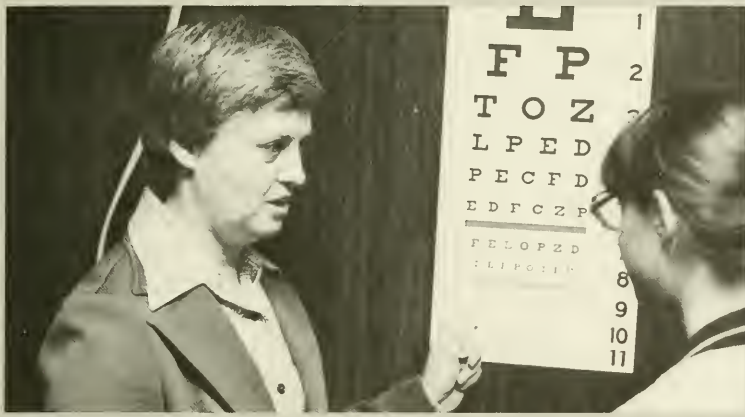 E 1
F P 2
T O Z
L P E D
P E C F D
E D F C Z P
F E L O P Z D
8
9
10
11